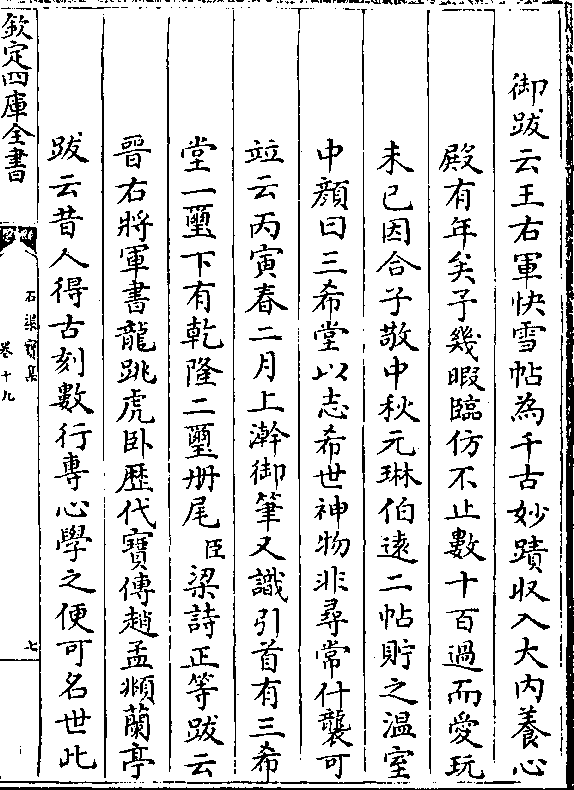 御跋云王右軍快雪帖為千古妙蹟收入大内養心
殿有年矣予幾暇臨仿不止數十百過而愛玩
未已因合子敬中秋元琳伯逺二帖貯之温室
中顔曰三希堂以志希世神物非尋常什襲可
竝云丙寅春二月上澣御筆又識引首有三希
堂一璽下有乾隆二璽册尾臣梁詩正等跋云
晉右將軍書龍跳虎卧歴代寳傳趙孟頫蘭亭
跋云昔人得古刻數行専心學之便可名世此
欽定四庫全書
石渠寳笈
卷十九
七